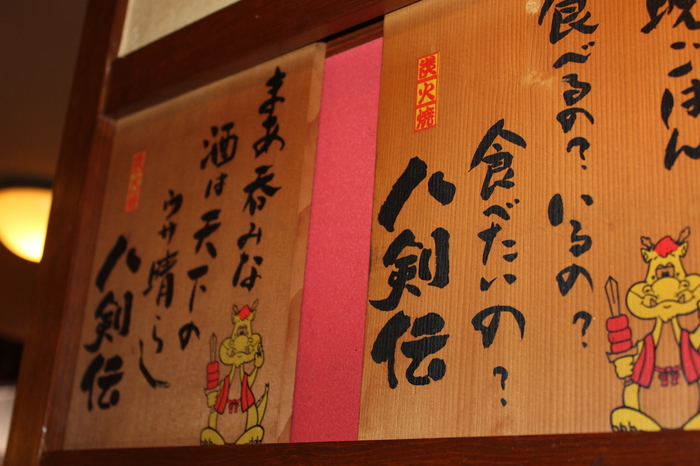 晩ごはん
食べるの？いるの？
食べたいの？
炭火焼
八剣伝
まあ呑みな
酒は天下の
ウサ晴らし
炭火焼
八剣伝